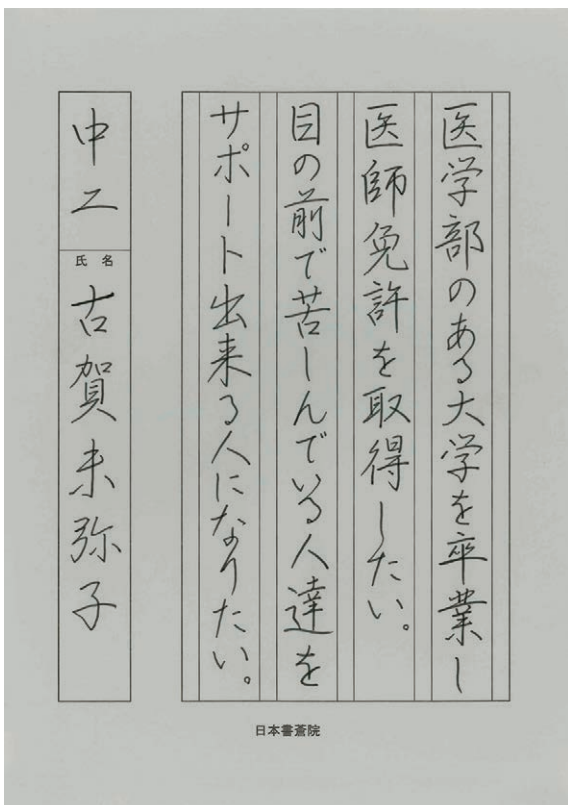 医学部のある大学を卒業し
医師免許を取得したい。
目の前で苦しんでいる人達を
サポート出来る人になりたい。
中二
氏名
古賀未弥子
日本書蒼院